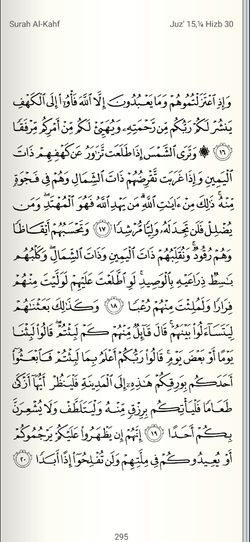 Surah Al-Kahf
Juz' 15,¼ Hizb 30
وَإِذِ ٱعْتَزَلْتُمُوهُمْ وَمَا يَعْبُدُونَ إِلَّا ٱللَّهَ فَأْوُۥٓا۟ إِلَى ٱلْكَهْفِ
يَنشُرْ لَكُمْ رَبُّكُم مِّن رَّحْمَتِهِۦ وَيُهَيِّئْ لَكُم مِّنْ أَمْرِكُم مِّرْفَقًا
١٦ ۞ وَتَرَى ٱلشَّمْسَ إِذَا طَلَعَت تَّزَٰوَرُ عَن كَهْفِهِمْ ذَاتَ
ٱلْيَمِينِ وَإِذَا غَرَبَت تَّقْرِضُهُمْ ذَاتَ ٱلشِّمَالِ وَهُمْ فِى فَجْوَةٍ
مِّنْهُ ۚ ذَٰلِكَ مِنْ ءَايَٰتِ ٱللَّهِ ۗ مَن يَهْدِ ٱللَّهُ فَهُوَ ٱلْمُهْتَدِ ۖ وَمَن
يُضْلِلْ فَلَن تَجِدَ لَهُۥ وَلِيًّا مُّرْشِدًا ١٧ وَتَحْسَبُهُمْ أَيْقَاظًا
وَهُمْ رُقُودٌ ۚ وَنُقَلِّبُهُمْ ذَاتَ ٱلْيَمِينِ وَذَاتَ ٱلشِّمَالِ ۖ وَكَلْبُهُم
بَٰسِطٌ ذِرَاعَيْهِ بِٱلْوَصِيدِ ۚ لَوِ ٱطَّلَعْتَ عَلَيْهِمْ لَوَلَّيْتَ مِنْهُمْ
فِرَارًا وَلَمُلِئْتَ مِنْهُمْ رُعْبًا ١٨ وَكَذَٰلِكَ بَعَثْنَٰهُمْ
لِيَتَسَآءَلُوا۟ بَيْنَهُمْ ۚ قَالَ قَآئِلٌ مِّنْهُمْ كَمْ لَبِثْتُمْ ۖ قَالُوا۟ لَبِثْنَا
يَوْمًا أَوْ بَعْضَ يَوْمٍ ۚ قَالُوا۟ رَبُّكُمْ أَعْلَمُ بِمَا لَبِثْتُمْ فَٱبْعَثُوٓا۟
أَحَدَكُم بِوَرِقِكُمْ هَٰذِهِۦٓ إِلَى ٱلْمَدِينَةِ فَلْيَنظُرْ أَيُّهَآ أَزْكَىٰ
طَعَامًا فَلْيَأْتِكُم بِرِزْقٍ مِّنْهُ وَلْيَتَلَطَّفْ وَلَا يُشْعِرَنَّ
بِكُمْ أَحَدًا ١٩ إِنَّهُمْ إِن يَظْهَرُوا۟ عَلَيْكُمْ يَرْجُمُوكُمْ
أَوْ يُعِيدُوكُمْ فِى مِلَّتِهِمْ وَلَن تُفْلِحُوٓا۟ إِذًا أَبَدًا ٢٠
295